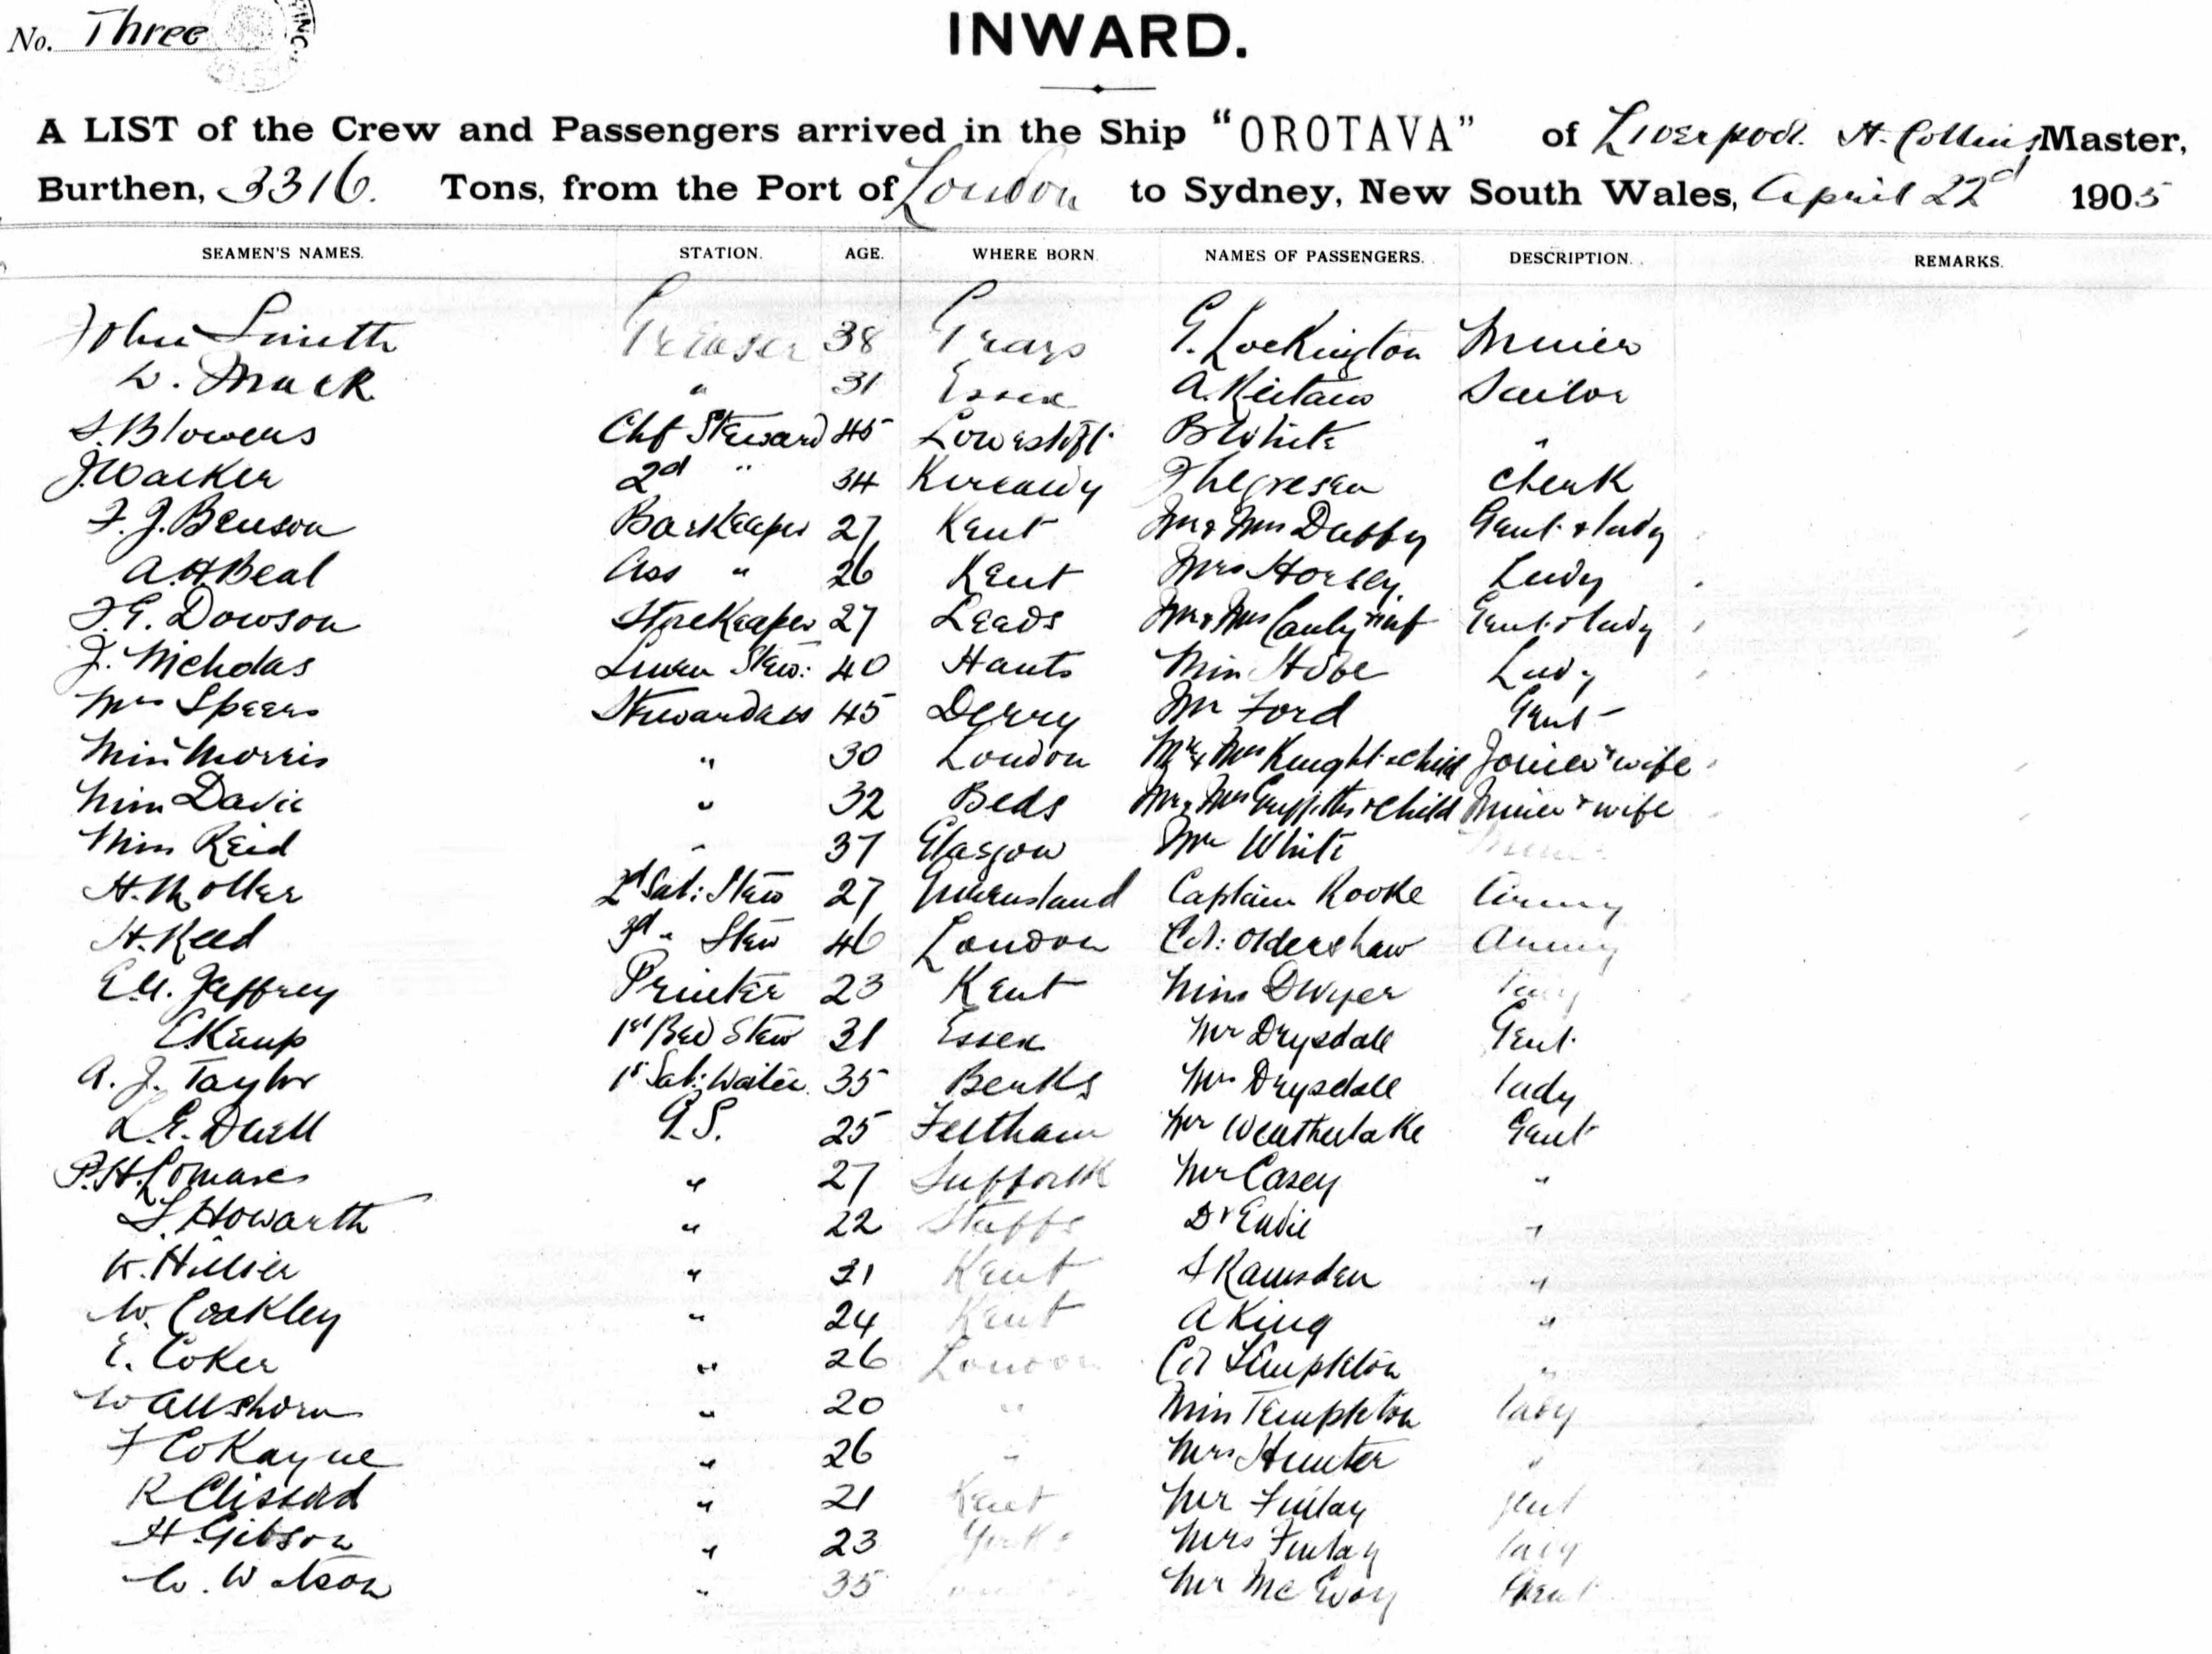 No. Three
INWARD.
A LIST of the Crew and Passengers arrived in the Ship "OROTAVA" of Liverpool H. Collins, Master,
Burthen, 3316. Tons, from the Port of London to Sydney, New South Wales, April 22d 1905
SEAMEN'S NAMES. STATION. AGE. WHERE BORN. NAMES OF PASSENGERS. DESCRIPTION. REMARKS.
John Smith Greaser 38 Grays G. Lockington Miner
Mack " 31 Essex A. Sailor
S. Blowers Chf Steward 45 Lowestoft B White "
J. Walker 2d " 34 Clerk
F. J. Benson Barkeeper 27 Kent Mr & Mrs Gent & lady
A. H. Beal Ass " 26 Kent Mrs Horsey Lady
F. G. Dowson Storekeeper 27 Leeds Mr & Mrs inf Gent & lady
J. Nicholas Linen Stew: 40 Hants Miss Lady
Mrs Speers Stewardess 45 Derry Mr Ford Gent
Miss Morris " 30 London Mr & Mrs Knight & child Joiner & wife
Miss Davie " 32 Beds Mr & Mrs Griffiths & child Miner & wife
Miss Reid " 37 Glasgow Mr White
H. Moller 2d Sal: Stew 27 Queensland Captain Rooke Army
H. Reed 3d " Stew 46 London Col: Oldershaw Army
Jeffrey Printer 23 Kent Miss Dwyer lady
E. Kemp 1st Bed Stew 31 Essex Mr Drysdale Gent
A. J. Taylor 1st Sal: Waiter 35 Berks Mrs Drysdale lady
L. E. Duell G.S. 25 Feltham Mr Weatherlake Gent
P. H. Lomax " 27 Suffolk Mr Casey "
S. Howarth " 22 Staffs Dr Eadie "
Hillier " 21 Kent S Ramsden "
W. Coakley " 24 Kent A King "
E. Coker " 26 London Col Templeton "
W Allshorn " 20 " Miss Templeton lady
F Cokayne " 26 " Mrs Hunter "
R Clissold " 21 Kent Mr Finlay gent
H. Gibson " 23 Yorks Mrs Finlay lady
W. Watson " 35 Mr McEvoy Gent